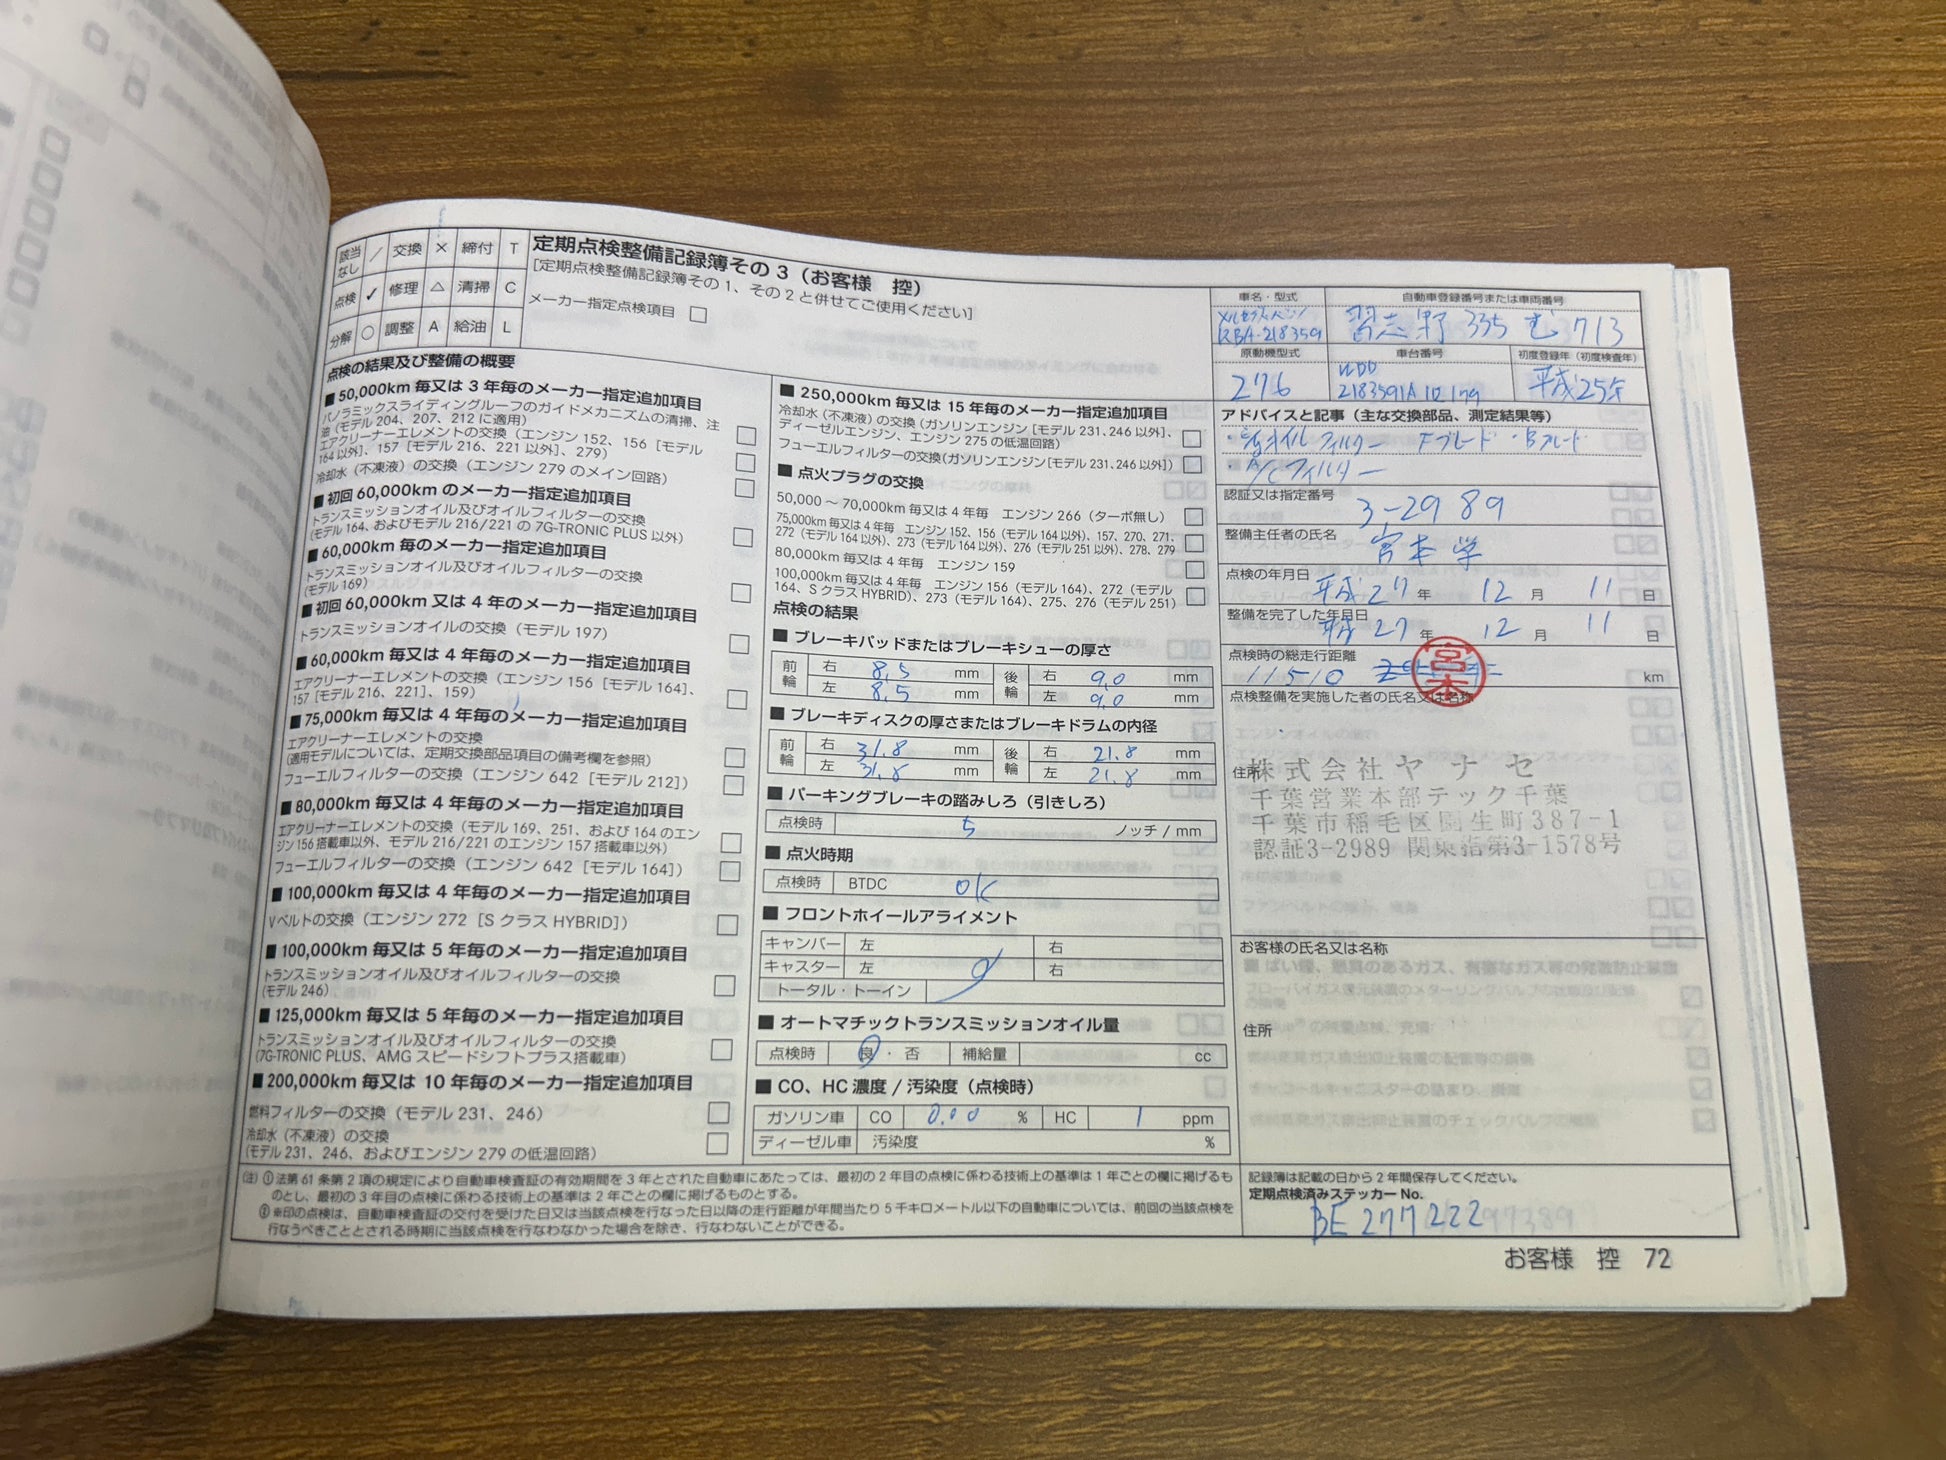 該当なし ／ 交換 × 締付 T
点検 ✓ 修理 △ 清掃 C
分解 ○ 調整 A 給油 L
定期点検整備記録簿その3（お客様 控）
[定期点検整備記録簿その1、その2と併せてご使用ください]
メーカー指定点検項目 □
点検の結果及び整備の概要
■ 50,000km 毎又は 3 年毎のメーカー指定追加項目
パノラミックスライディングルーフのガイドメカニズムの清掃、注
油（モデル 204、207、212 に適用）
エアクリーナーエレメントの交換（エンジン 152、156［モデル
164 以外］、157［モデル 216、221 以外］、279）
冷却水（不凍液）の交換（エンジン 279 のメイン回路）
■ 初回 60,000km のメーカー指定追加項目
トランスミッションオイル及びオイルフィルターの交換
（モデル 164、およびモデル 216/221 の 7G-TRONIC PLUS 以外）
■ 60,000km 毎のメーカー指定追加項目
トランスミッションオイル及びオイルフィルターの交換
（モデル 169）
■ 初回 60,000km 又は 4 年のメーカー指定追加項目
トランスミッションオイルの交換（モデル 197）
■ 60,000km 毎又は 4 年毎のメーカー指定追加項目
エアクリーナーエレメントの交換（エンジン 156［モデル 164］、
157［モデル 216、221］、159）
■ 75,000km 毎又は 4 年毎のメーカー指定追加項目
エアクリーナーエレメントの交換
（適用モデルについては、定期交換部品項目の備考欄を参照）
フューエルフィルターの交換（エンジン 642［モデル 212］）
■ 80,000km 毎又は 4 年毎のメーカー指定追加項目
エアクリーナーエレメントの交換（モデル 169、251、および 164 のエン
ジン 156 搭載車以外、モデル 216/221 のエンジン 157 搭載車以外）
フューエルフィルターの交換（エンジン 642［モデル 164］）
■ 100,000km 毎又は 4 年毎のメーカー指定追加項目
Vベルトの交換（エンジン 272［S クラス HYBRID］）
■ 100,000km 毎又は 5 年毎のメーカー指定追加項目
トランスミッションオイル及びオイルフィルターの交換
（モデル 246）
■ 125,000km 毎又は 5 年毎のメーカー指定追加項目
トランスミッションオイル及びオイルフィルターの交換
（7G-TRONIC PLUS、AMG スピードシフトプラス搭載車）
■ 200,000km 毎又は 10 年毎のメーカー指定追加項目
燃料フィルターの交換（モデル 231、246）
冷却水（不凍液）の交換
（モデル 231、246、およびエンジン 279 の低温回路）
■ 250,000km 毎又は 15 年毎のメーカー指定追加項目
冷却水（不凍液）の交換（ガソリンエンジン［モデル 231、246 以外］、
ディーゼルエンジン、エンジン 275 の低温回路）
フューエルフィルターの交換（ガソリンエンジン［モデル 231、246 以外］）
■ 点火プラグの交換
50,000 ～ 70,000km 毎又は 4 年毎 エンジン 266（ターボ無し）
75,000km 毎又は 4 年毎 エンジン 152、156（モデル 164 以外）、157、270、271、
272（モデル 164 以外）、273（モデル 164 以外）、276（モデル 251 以外）、278、279
80,000km 毎又は 4 年毎 エンジン 159
100,000km 毎又は 4 年毎 エンジン 156（モデル 164）、272（モデル
164、S クラス HYBRID）、273（モデル 164）、275、276（モデル 251）
点検の結果
■ ブレーキパッドまたはブレーキシューの厚さ
前輪 右 8.5 mm 後輪 右 9.0 mm
左 8.5 mm 左 9.0 mm
■ ブレーキディスクの厚さまたはブレーキドラムの内径
前輪 右 31.8 mm 後輪 右 21.8 mm
左 31.8 mm 左 21.8 mm
■ パーキングブレーキの踏みしろ（引きしろ）
点検時 5 ノッチ / mm
■ 点火時期
点検時 BTDC OK
■ フロントホイールアライメント
キャンバー 左 右
キャスター 左 右
トータル・トーイン
■ オートマチックトランスミッションオイル量
点検時 良・否 補給量 cc
■ CO、HC 濃度 / 汚染度（点検時）
ガソリン車 CO 0.00 % HC 1 ppm
ディーゼル車 汚染度 %
車名・型式 自動車登録番号または車両番号
メルセデスベンツ
RBA-218359 習志野 335 む 713
原動機型式 車台番号 初度登録年（初度検査年）
276 WDD
2183591A 10 179 平成25年
アドバイスと記事（主な交換部品、測定結果等）
オイルフィルター Fブレード ・Rブレード
・A/Cフィルター
認証又は指定番号 3-2989
整備主任者の氏名 宮本 学
点検の年月日 平成 27 年 12 月 11 日
整備を完了した年月日 平成 27 年 12 月 11 日
点検時の総走行距離 11510 km
宮本
点検整備を実施した者の氏名又は名称
住所
株式会社ヤナセ
千葉営業本部テック千葉
千葉市稲毛区園生町387-1
認証3-2989 関東指第3-1578号
お客様の氏名又は名称
住所
(注) ① 法第 61 条第 2 項の規定により自動車検査証の有効期間を 3 年とされた自動車にあたっては、最初の 2 年目の点検に係わる技術上の基準は 1 年ごとの欄に掲げるも
のとし、最初の 3 年目の点検に係わる技術上の基準は 2 年ごとの欄に掲げるものとする。
② ※印の点検は、自動車検査証の交付を受けた日又は当該点検を行なった日以降の走行距離が年間当たり 5 千キロメートル以下の自動車については、前回の当該点検を
行なうべきこととされる時期に当該点検を行なわなかった場合を除き、行なわないことができる。
記録簿は記載の日から 2 年間保存してください。
定期点検済みステッカー No.
BE 277222
お客様 控 72